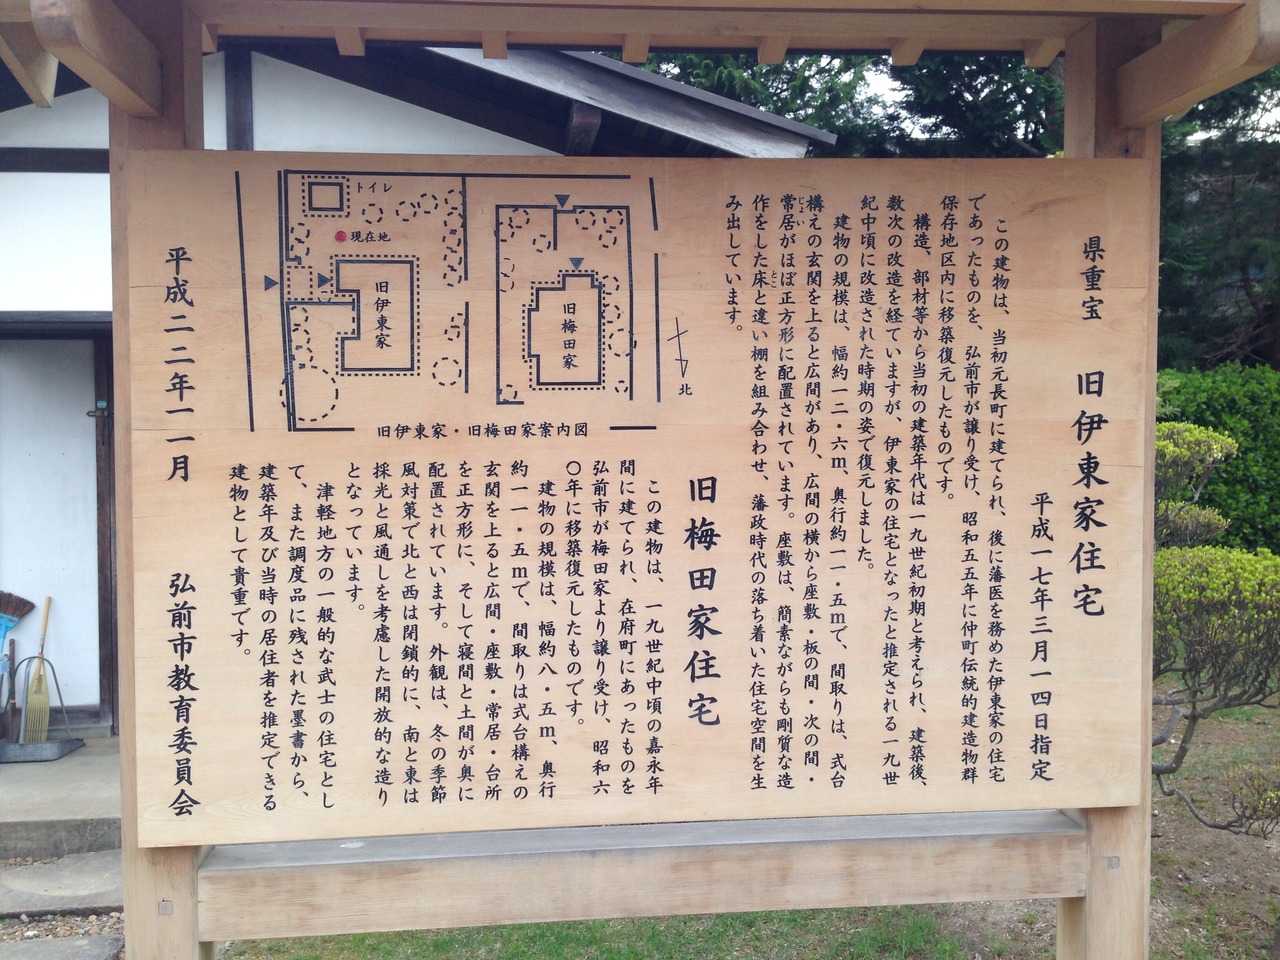 県重宝　旧伊東家住宅
平成一七年三月一四日指定
この建物は、当初元長町に建てられ、後に藩医を務めた伊東家の住宅
であったものを、弘前市が譲り受け、昭和五五年に仲町伝統的建造物群
保存地区内に移築復元したものです。
構造、部材等から当初の建築年代は一九世紀初期と考えられ、建築後、
数次の改造を経ていますが、伊東家の住宅となったと推定される一九世
紀中頃に改造された時期の姿で復元しました。
建物の規模は、幅約一二・六m、奥行約一一・五mで、間取りは、式台
構えの玄関を上ると広間があり、広間の横から座敷・板の間・次の間・
常居がほぼ正方形に配置されています。座敷は、簡素ながらも剛質な造
じょい
作をした床と違い棚を組み合わせ、藩政時代の落ち着いた住宅空間を生
とこ
み出しています。
旧梅田家住宅
この建物は、一九世紀中頃の嘉永年
間に建てられ、在府町にあったものを
弘前市が梅田家より譲り受け、昭和六
〇年に移築復元したものです。
建物の規模は、幅約八・五m、奥行
約一一・五mで、間取りは式台構えの
玄関を上ると広間・座敷・常居・台所
を正方形に、そして寝間と土間が奥に
配置されています。外観は、冬の季節
風対策で北と西は閉鎖的に、南と東は
採光と風通しを考慮した開放的な造り
となっています。
津軽地方の一般的な武士の住宅とし
て、また調度品に残された墨書から、
建築年及び当時の居住者を推定できる
建物として貴重です。
トイレ
現在地
旧伊東家
旧梅田家
北
旧伊東家・旧梅田家案内図
平成二二年一一月　弘前市教育委員会